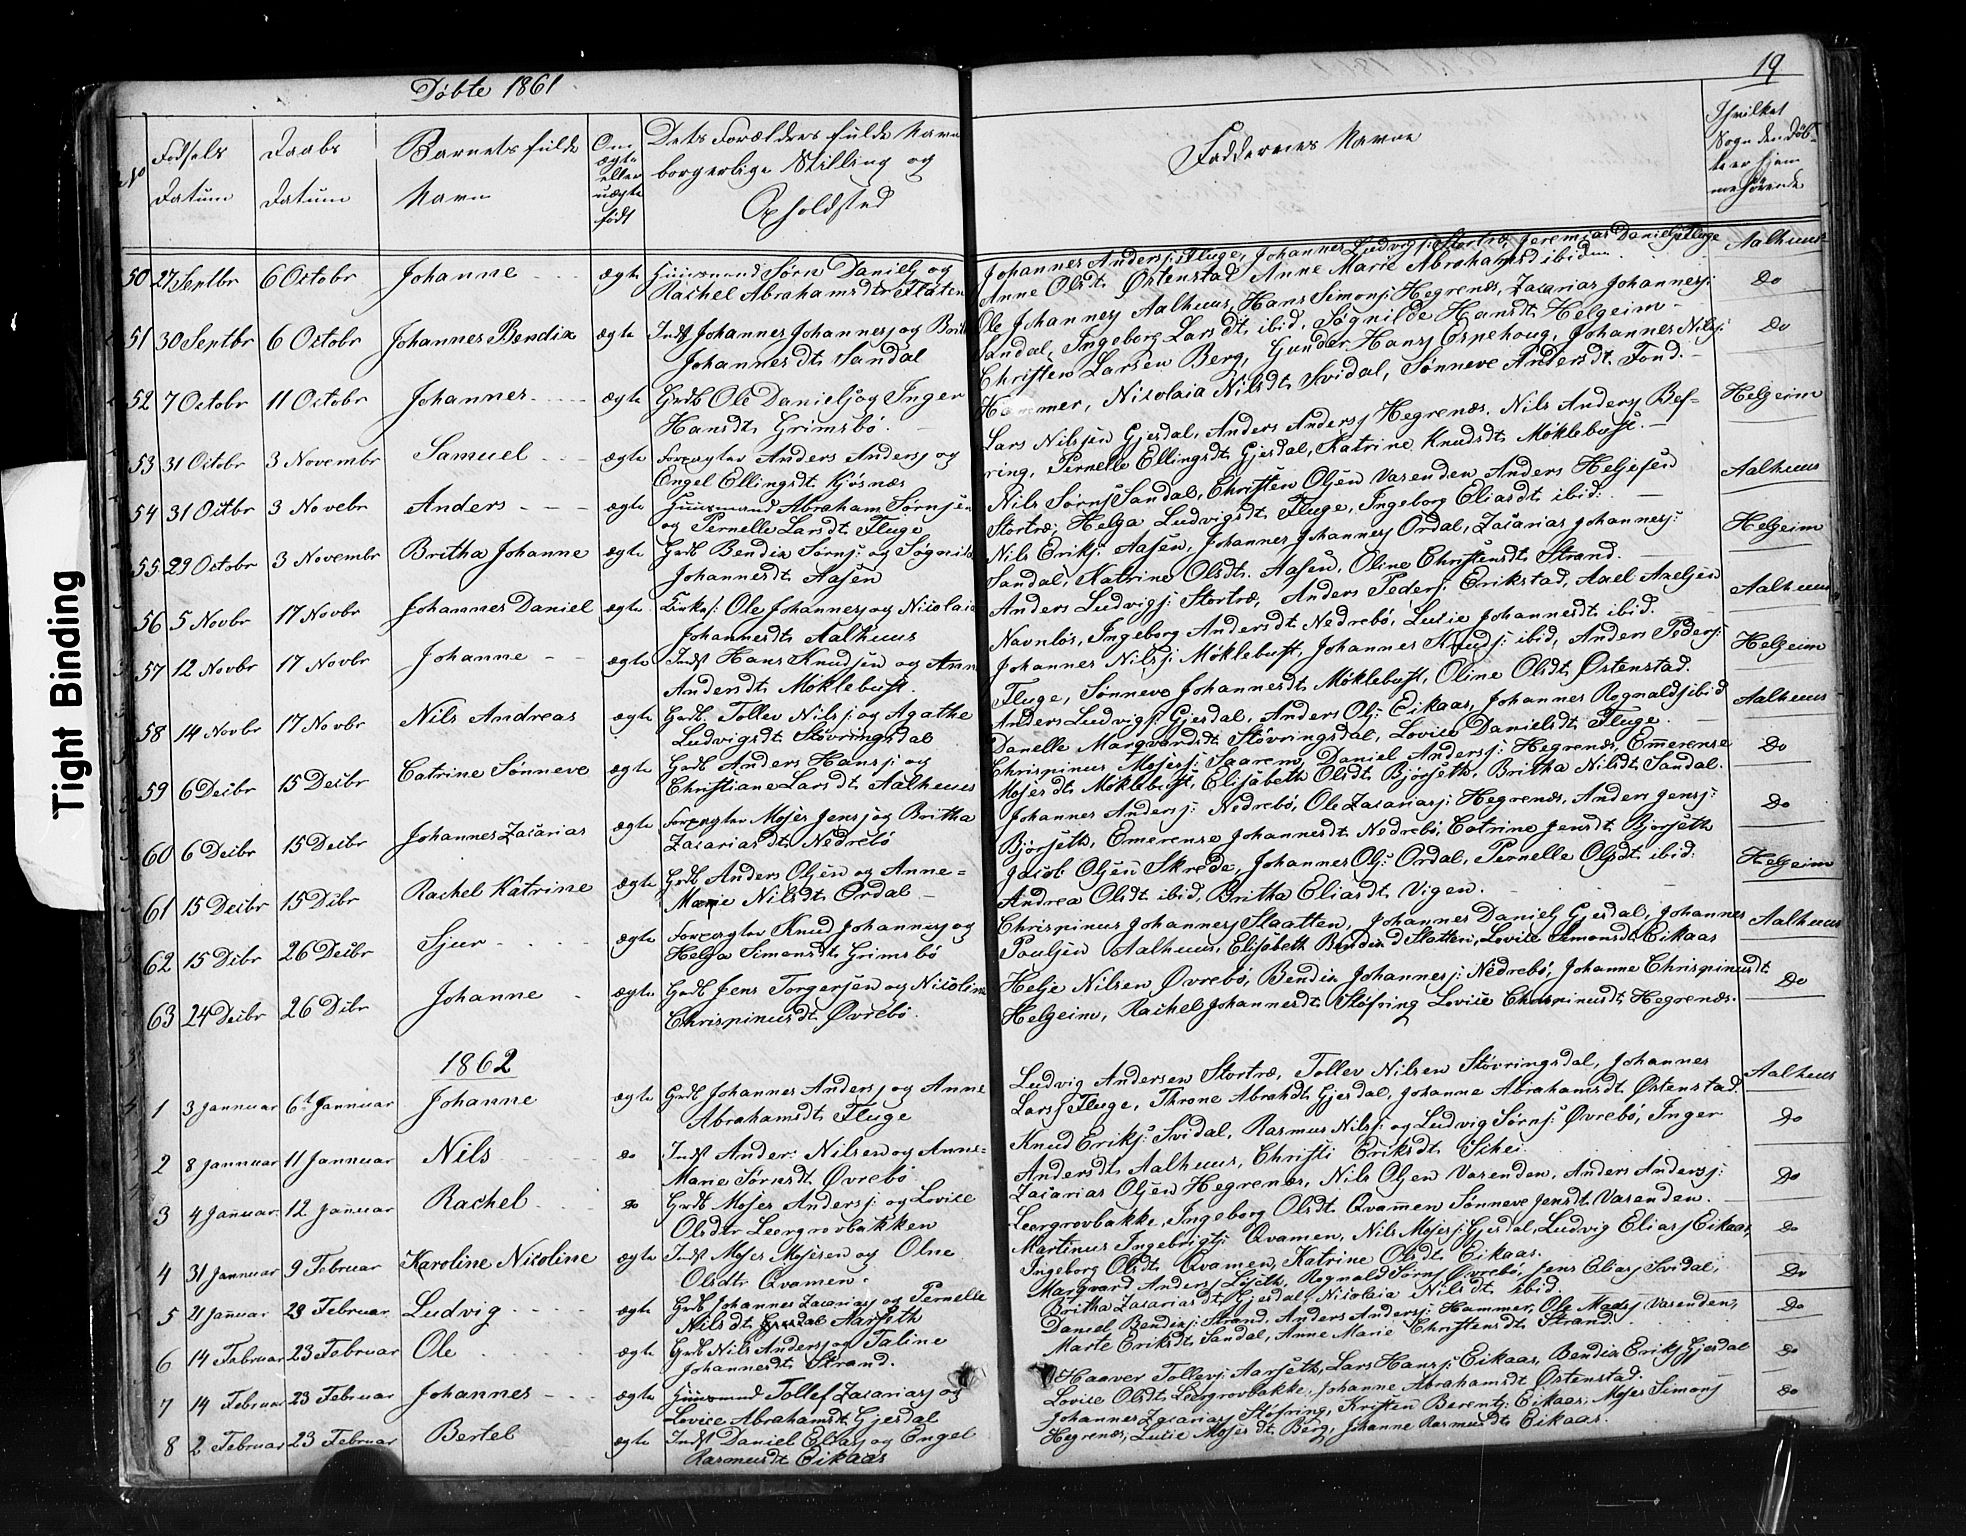 Döbte 1861
19
No
Fødsels Datum
Daabs Datum
Barnets fulde Navn
Om ægte eller uægte født
Dets Forældres fulde Navn borgerlige Stilling og Opholdsted
Faddernes Navne
I hvilket Sogn den döbte er hjemmehørende
50 27 Septbr 6 Octobr Johanne ægte Huusmand Sørn Danielsj og
Rachel Abrahamsdtr Flaten
Johannes Andersj: Fluge, Johannes Ludvigsj: Stortræ, Jeremias Danielsj Fluge
Anne Olsdt. Østenstad Anne Marie Abrahamsd ibidem
Aalhuus
51 30 Septbr 6 Octobr Johannes Bendix ægte Indst Johannes Johannesj og Brite
Johannesdt. Sandal
Ole Johannesj Aalhuus, Hans Simonsj: Hegrenæs, Zacarias Johannesj:
Sandal, Ingeborg Larsdt. ibid, Søgnilde Hansdt. Helgeim
Do
52 7 Octobr 11 Octobr Johannes ægte Grdb Ole Danielsj og Inger
Hansdt. Grimsbö.
Christen Larsen Berg, Gunder Hansj Espehoug, Johannes Nilsj:
Hammer, Nicolaia Nilsdt. Svidal, Sønneve Andersdt. Fond.
Do
53 31 Octobr 3 Novembr Samuel ægte Forpagter Anders Andersj og
Engel Ellingsdt Kjøsnæs
Lars Nilssen Gjesdal, Anders Andersj Hegrenæs. Nils Andersj Bef-
ring, Pernelle Ellingsdt. Gjesdal, Katrine Knudsdt. Møklebust.
Helgeim
54 31 Octbr 3 Novebr Anders ægte Huusmand Abraham Sørnsen
og Pernelle Larsdt. Fluge
Nils Sørnsj Sandal, Christen Olsen Varenden, Anders Heljesen
Stortræ, Helga Ludvigsdt. Fluge, Ingeborg Eliasdt. ibid:
Aalhuus
55 29 Octobr 3 Novembr Britha Johanne ægte Grdb Bendix Sørnsj: og Søgnild
Johannesdt. Aasen
Nils Eriksj: Aasen, Johannes Johannesj Ordal, Zacarias Johannesj:
Sandal, Katrine Olsdt. Aasen, Oline Christensdt. Strand.
Helgeim
56 5 Novbr 17 Novbr Johannes Daniel ægte Enkes: Ole Johannesj og Nicolaia
Johannesdt. Aalhuus
Anders Ludvigsj: Stortræ, Anders Pedersj: Erikstad, Axel Axelsen
Navnløs, Ingeborg Andersdt. Nedrebö, Lucie Johannesdt. ibid.
Aalhuus
57 12 Novbr 17 Novbr Johanne ægte Indst Hans Knudsen og Anne
Andersdt. Møklebust.
Johannes Nilsj: Møklebust, Johannes Knudsj: ibid, Anders Pedersj:
Fluge, Sønneve Johannesdt. Møklebust, Oline Olsdt. Østenstad.
Helgeim
58 14 Novbr 17 Novbr Nils Andreas ægte Grdb. Tollev Nilsj: og Agathe
Ludvigsdt. Støvringsdal
Anders Ludvigsj: Gjesdal, Anders Olsj: Eikaas, Johannes Rognaldsj ibid
Danelle Marqvardsdt. Støvringsdal, Lovice Danielsdt. Fluge.
Aalhuus
59 6 Decbr 15 Decbr Catrine Sønneve ægte Grdb Anders Hansj: og
Christiane Larsdt. Aalhuus
Chrispinus Mosesj: Saarem, Daniel Andersj: Hegrenæs, Emerense
Mosesdt. Møklebust, Elisabeth Olsdt. Bjørseth, Britha Nilsdt. Sandal.
Do
60 6 Decbr 15 Decbr Johannes Zacarias ægte Forpagter Moses Jensj og Britha
Zacariasdt. Nedrebö
Johannes Andersj: Nedrebö, Ole Zacariasj: Hegrenæs, Anders Jensj:
Bjørseth, Emerense Johannesdt. Nedrebö, Catrine Jensdt. Bjørseth
Do
61 15 Decbr 15 Dcbr Rachel Katrine ægte Grdb Anders Olsen og Anne=
Marie Nilsdt. Ordal
Jacob Olsen Skrede, Johannes Olsj: Ordal, Pernelle Olsdt. ibid:
Andrea Olsdt. ibid, Britha Eliasdt. Vigen.
Helgeim
62 15 Dcbr 26 Decbr Sjur ægte Forpagter Knud Johannesj og
Helga Simonsdt. Grimsbö
Chrispinus Johannesj Slaatten, Johannes Danielsj Gjesdal, Johannes
Poulsen Aalhuus, Elisabeth Bendixd Slatten, Lovice Simonsdt. Eikaas
Aalhuus
63 24 Decbr 26 Dcbr Johanne ægte Grdb Jens Torgersen og Nicoline
Chrispinusdt. Øvrebö.
Helje Nilsen Øvrebö, Bendix Johannesj: Nedrebö, Johanne Chrispinusdt.
Helgeim, Rachel Johannesdt. Støfring Lovice Chrispinusdt. Hegrenæs.
Do
1862
1 3 Januuar 6t Januuar Johanne ægte Grdb Johannes Andersj og Anne
Abrahamsdt. Fluge
Ludvig Andersen Stortræ, Tollev Nilsen Støvringsdal, Johannes
Larsj Fluge, Throne Abrahdt. Gjesdal, Johanne Abrahamsdt. Østenstad.
Aalhuus
2 8 Januuar 11 Januuar Nils do Indst Anders Nilsen og Anne=
Marie Sørnsdt. Øvrebö
Knud Eriksj: Svidal, Rasmus Nilsj: og Ludvig Sørnsj: Øvrebö, Inger
Andersdt. Aalhuus, Christi Eriksdt.
Do
3 4 Januar 12 Januar Rachel do Grdb Moses Andersj: og Lovice
Olsdtr Leergrovbakken
Zacarias Olsen Hegrenæs, Nils Olsen Varenden, Anders Andersj:
Leergrovbakke, Ingeborg Olsdt. Qvamen Sønneve Jensdt. Varenden.
Do
4 31 Januuar 9 Februar Karoline Nicoline ægte Indst Moses Mosesen og Olne
Olsdtr Qvamen.
Martinus Ingebrigtsj: Qvamen, Nils Mosesj: Gjesdal, Ludvig Eliasj Eikaas,
Ingeborg Olsdt. Qvamen, Katrine Olsdt. Eikaas.
Do
5 21 Januar 23 Februar Ludvig ægte Grdb Johannes Zacariasj og Pernelle
Nilsdt. Aarseth
Marqvard Andersj Løseth, Rognald Sørnsj Øvrebö, Jens Eliasj Svidal,
Britha Zacariasdt. Gjesdal, Nicolaia Nilsdt. ibid.
Do
6 14 Februar 23 Februar Ole ægte Grdb Nils Andersj og Taline
Johannesdt. Strand.
Daniel Bendixsj: Strand, Anders Andersj: Hammer, Ole Madsj Varenden,
Marte Eriksdt. Sandal, Anne Marie Christensdt. Strand.
Do
7 14 Februar 23 Februar Johannes ægte Huusmand Tollef Zacariasj og
Lovice Abrahamsdt. Gjesdal
Haaver Tollevsj: Aarseth, Lars Hansj: Eikaas, Bendix Eriksj Gjesdal
Lovise Olsdt. Leergrovbakke, Johanne Abrahamsdt. Østenstad.
Do
8 2 Februar 23 Februar Bertel ægte Indst Daniel Eliasj og Engel
Rasmusdt. Eikaas
Johannes Zacariasj Støfring, Kristen Berentsj: Eikaas, Moses Simonsj
Hegrenæs, Lucie Mosesdt. Berg, Johanne Rasmusdt. Eikaas.
Do
Tight Binding